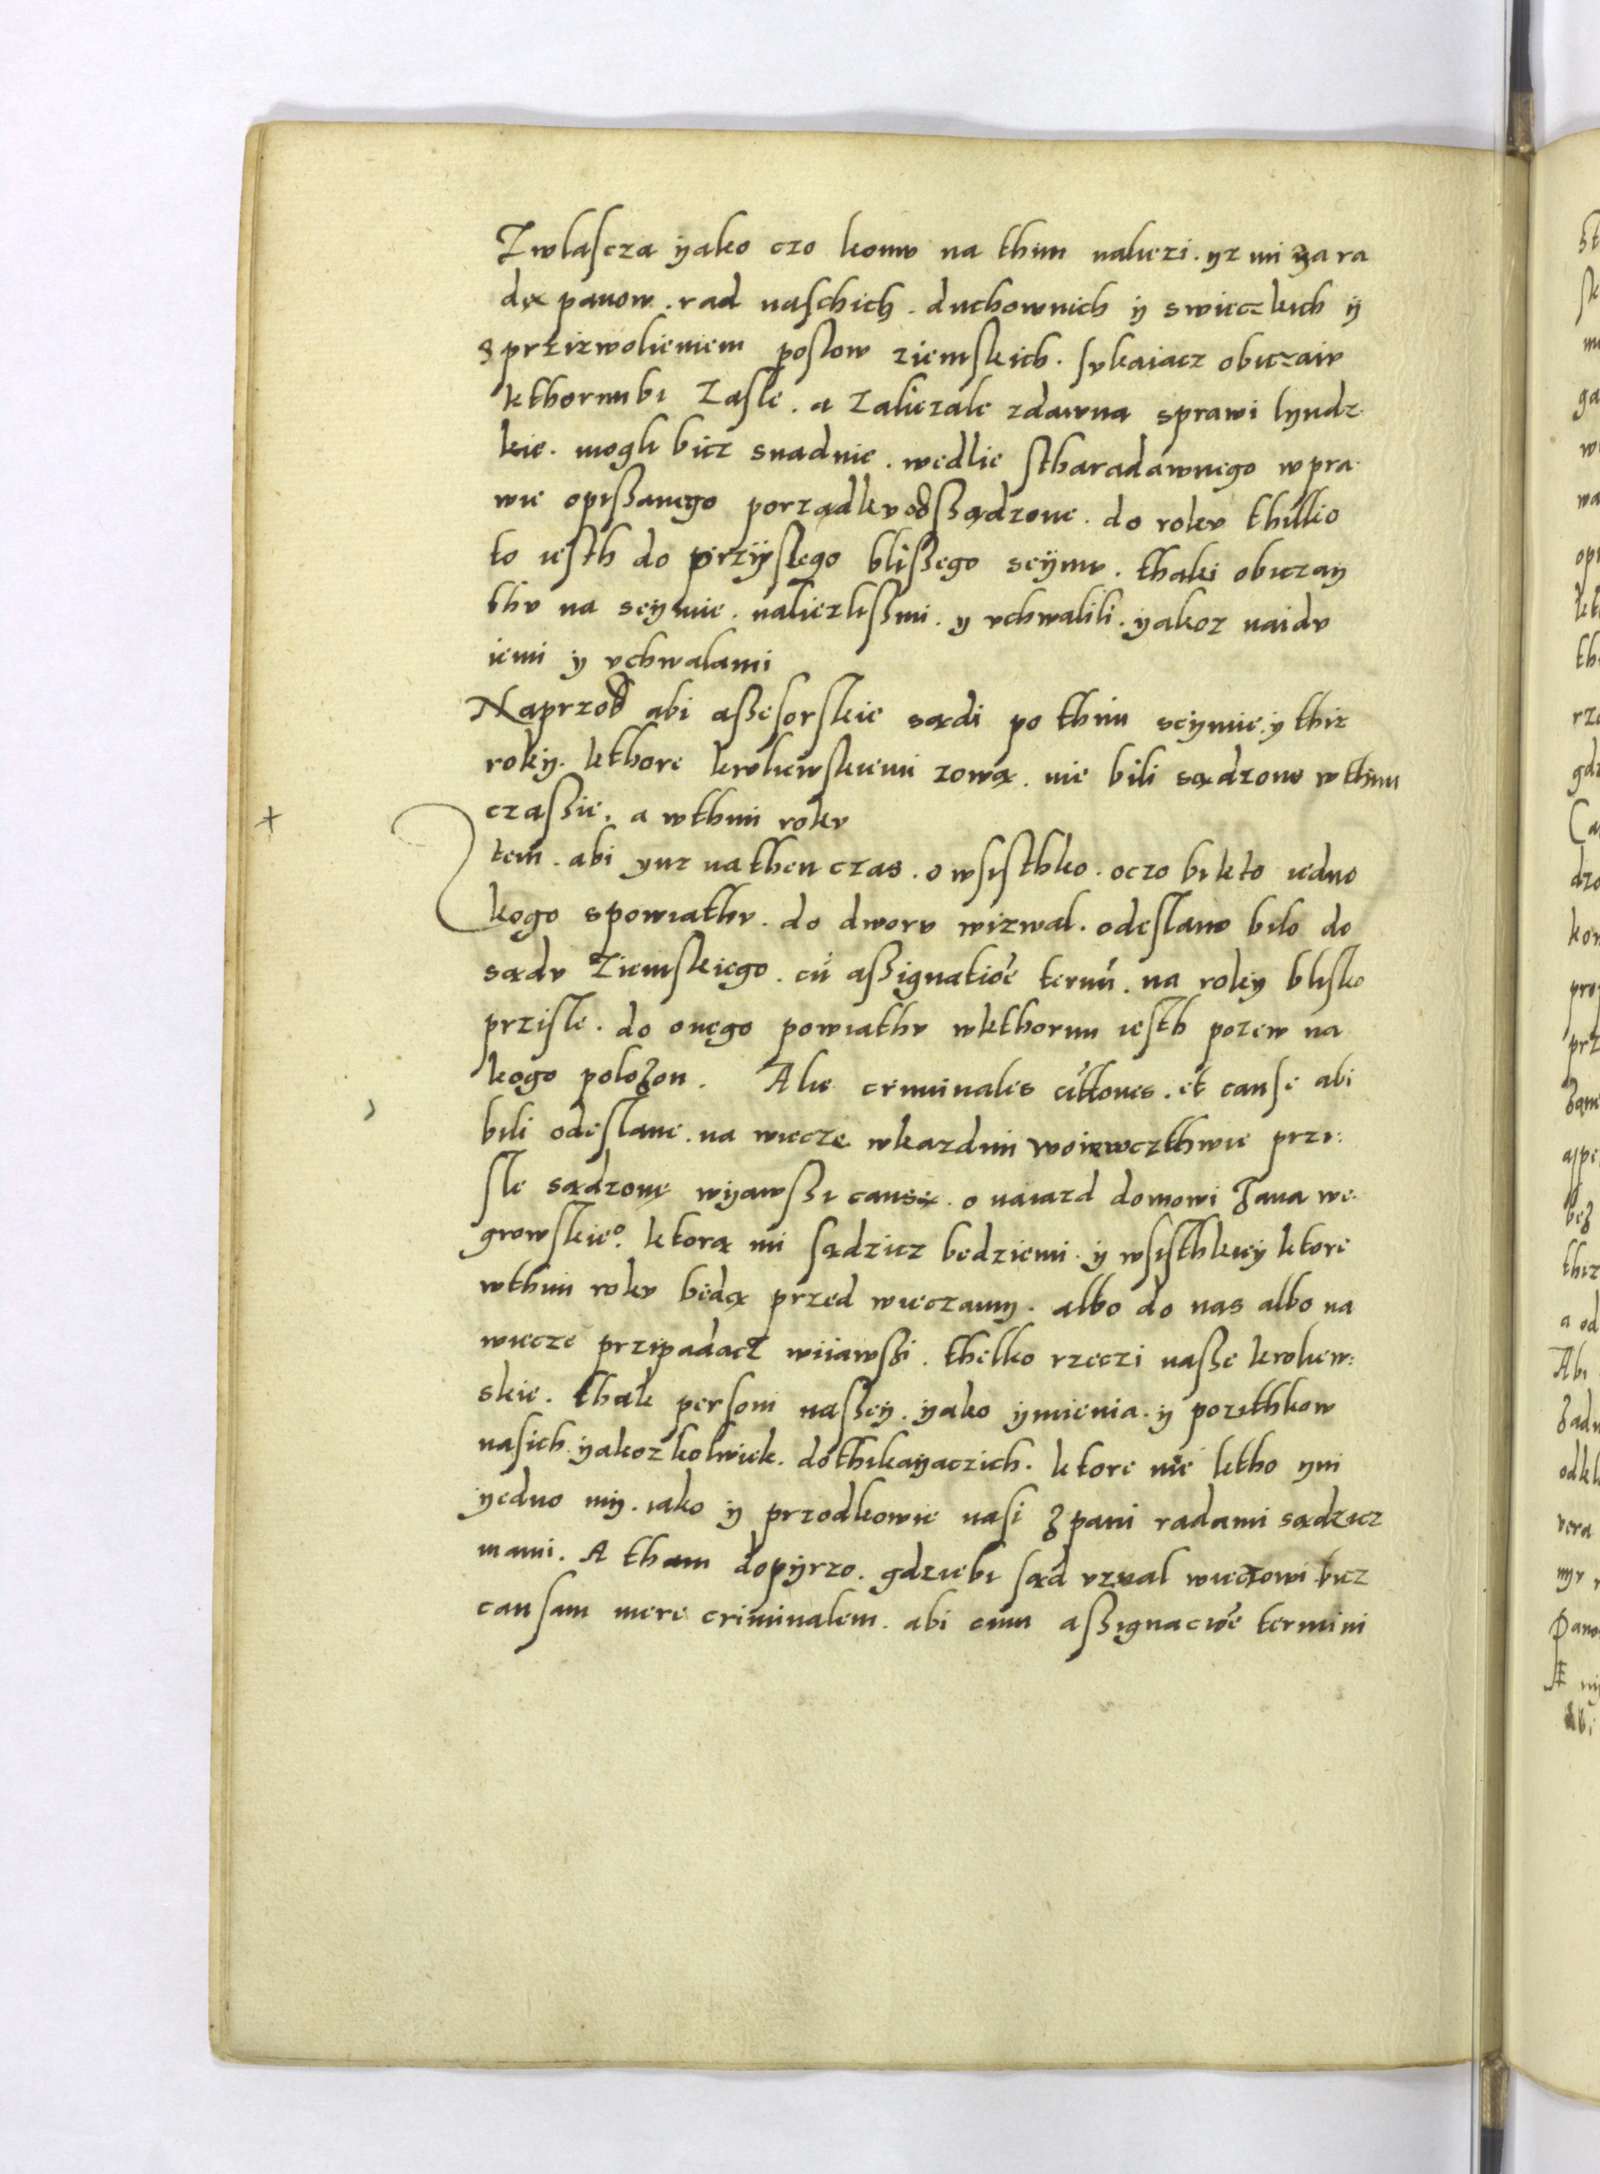 Zwlascza yako czo komv na thim nalezi. yz mi za ra
dą panow. rad naschich. duchownich ÿ swieczkich ÿ
z przizwoleniem poslow ziemskich. sukaiacz obiczaiv
kthorimbi zasle. a zaliezale zdawna sprawi lyudz
kie. mogli bicz snadnie. wedlie stharadawnego w pra
wie opißanego porządkv odßądzone. do rokv thilko
to iesth do przÿslego blißego seÿmv. thaki obiczaÿ
thv na seÿmie. naliezlißmi. y vchwalili. ÿakoz naidv
iemi ÿ vchwalami
Naprzod abi aßesorskie sądi po thim seÿmie. y thiz
rokÿ. kthore krolewskiemi zową. nie bili sądzone w thim
czaßie. a wthim rokv
Item. abi ynz na then czas. o wsisthko. oczo bi kto iedno
kogo s powiathv. do dworv wizwal. odeslano bilo do
sądv Ziemskiego. cū aßignatiōe termī. na rokÿ blisko
prziśle. do onego powiathv wkthorim iesth pozew na
kogo polozon. Alie criminales citationes. et cause abi
bili odeslane. na wiecze wkazdim woiewczthwie przi:
sle sądzone wÿawßi causą. o naiazd domowi Jana we
growskieo. ktorą mi sądzicz bedziemi. ÿ wsisthkieÿ ktore
wthim rokv bedą przed wieczamy. albo do nas albo na
wiecze przipadacz wiiawßi. thelko rzeczi naße krolew:
skie. thak personi naßeÿ. ÿako ÿmienia. ÿ pozithkow
nasich. ÿakozkolwiek. dothikaÿaczich. ktore nie ktho yni
ÿedno mÿ. iako ÿ przodkowie nasi z pani radami sądzicz
mami. A tham dopÿrzo. gdziebi sąd vznal wieczowi bicz
causam mere criminalem. abi cum aßignacioē termini